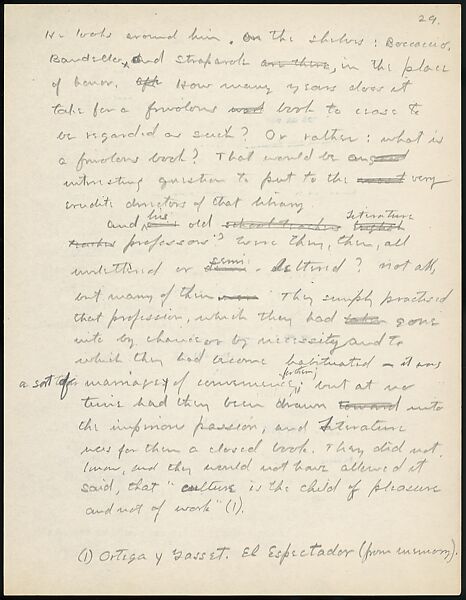 29.
He looks around him. On the shelves: Boccaccio,
Bandello, and Straparola are there, in the place
of honor. How many years does it
take for a frivolous book to cease to
be regarded as such? Or rather: what is
a frivolous book? That would be an
interesting question to put to the very
erudite directors of that library
and his old school teachers literature
teacher professors? Were they, then, all
unlettered or semi-lettered? Not all,
but many of them. They simply practised
that profession, which they had gone
into by chance or by necessity and to
which they had become habituated – it was
a sort of marriage of convenience; but at no
further
time had they been drawn toward into
the impious passion, and literature
was for them a closed book. They did not
know, and they would not have allowed it
said, that "culture is the child of pleasure
and not of work" (1).
(1) Ortega y Gasset. El Espectador (from memory).